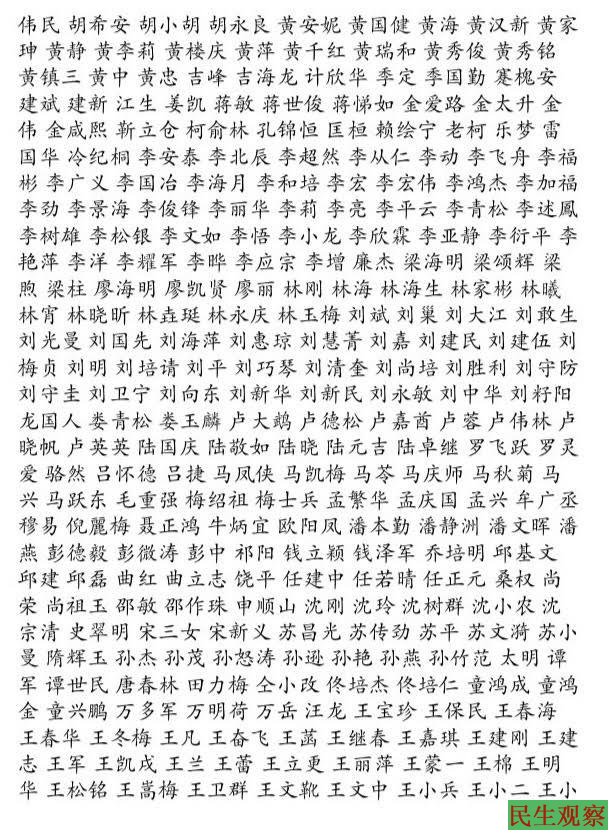 伟民 胡希安 胡小胡 胡永良 黄安妮 黄国健 黄海 黄汉新 黄家
珅 黄静 黄李莉 黄楼庆 黄萍 黄千红 黄瑞和 黄秀俊 黄秀铭
黄镇三 黄中 黄忠 吉峰 吉海龙 计欣华 李定 李国勤 蹇槐安
建斌 建新 江生 姜凯 蒋敏 蒋世俊 蒋悌如 金爱路 金太升 金
伟 金咸熙 靳立仓 柯俞林 孔锦恒 匡桓 赖绘宁 老柯 乐梦 雷
国华 冷纪桐 李安泰 李北辰 李超然 李从仁 李动 李飞舟 李福
彬 李广义 李国冶 李海月 李和培 李宏 李宏伟 李鸿杰 李加福
李劲 李景海 李俊锋 李丽华 李莉 李亮 李平云 李青松 李述鳳
李树雄 李松银 李文如 李悟 李小龙 李欣霖 李亚静 李衍平 李
艳萍 李洋 李耀军 李晔 李应宗 李增 廉杰 梁海明 梁颂辉 梁
煦 梁柱 廖海明 廖凯贤 廖丽 林刚 林海 林海生 林家彬 林曦
林宵 林晓昕 林垚珽 林永庆 林玉梅 刘斌 刘巢 刘大江 刘敢生
刘光曼 刘国先 刘海萍 刘惠琼 刘慧菁 刘嘉 刘建民 刘建伍 刘
梅贞 刘明 刘培请 刘平 刘巧琴 刘清奎 刘尚培 刘胜利 刘守防
刘守圭 刘卫宁 刘向东 刘新华 刘新民 刘永敏 刘中华 刘籽阳
龙国人 娄青松 娄玉麟 卢大鹉 卢德松 卢嘉酋 卢蓉 卢伟林 卢
晓帆 卢英英 陆国庆 陆敬如 陆晓 陆元吉 陆卓继 罗飞跃 罗灵
爱 骆然 吕怀德 吕捷 马凤侠 马凯梅 马苓 马庆师 马秋菊 马
兴 马跃东 毛重强 梅绍祖 梅士兵 孟繁华 孟庆国 孟兴 牟广丞
穆易 倪麗梅 聂正鸿 牛炳宜 欧阳凤 潘本勤 潘静洲 潘文晖 潘
燕 彭德毅 彭微涛 彭中 祁阳 钱立颖 钱泽军 乔培明 邱基文
邱建 邱磊 曲红 曲立志 饶平 任建中 任若晴 任正元 桑权 尚
荣 尚祖玉 邵敏 邵作珠 申顺山 沈刚 沈玲 沈树群 沈小农 沈
宗清 史翠明 宋三女 宋新义 苏昌光 苏传劲 苏平 苏文漪 苏小
曼 隋辉玉 孙杰 孙茂 孙怒涛 孙逊 孙艳 孙燕 孙竹范 太明 谭
军 谭世民 唐春林 田力梅 仝小改 佟培杰 佟培仁 童鸿成 童鸿
金 童兴鹏 万多军 万明荷 万岳 汪龙 王宝珍 王保民 王春海
王春华 王冬梅 王凡 王奋飞 王菡 王继春 王嘉琪 王建刚 王建
志 王军 王凯戍 王兰 王蕾 王立更 王丽萍 王蒙一 王棉 王明
华 王松铭 王嵩梅 王卫群 王文靴 王文中 王小兵 王小二 王小
民生观察